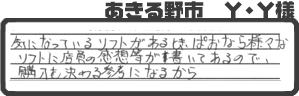 あきる野市　Y・Y様
気になっているソフトがあるとき、ぱおなら様々な
ソフトに店員の感想等が書いてあるので、
購入を決める参考になるから